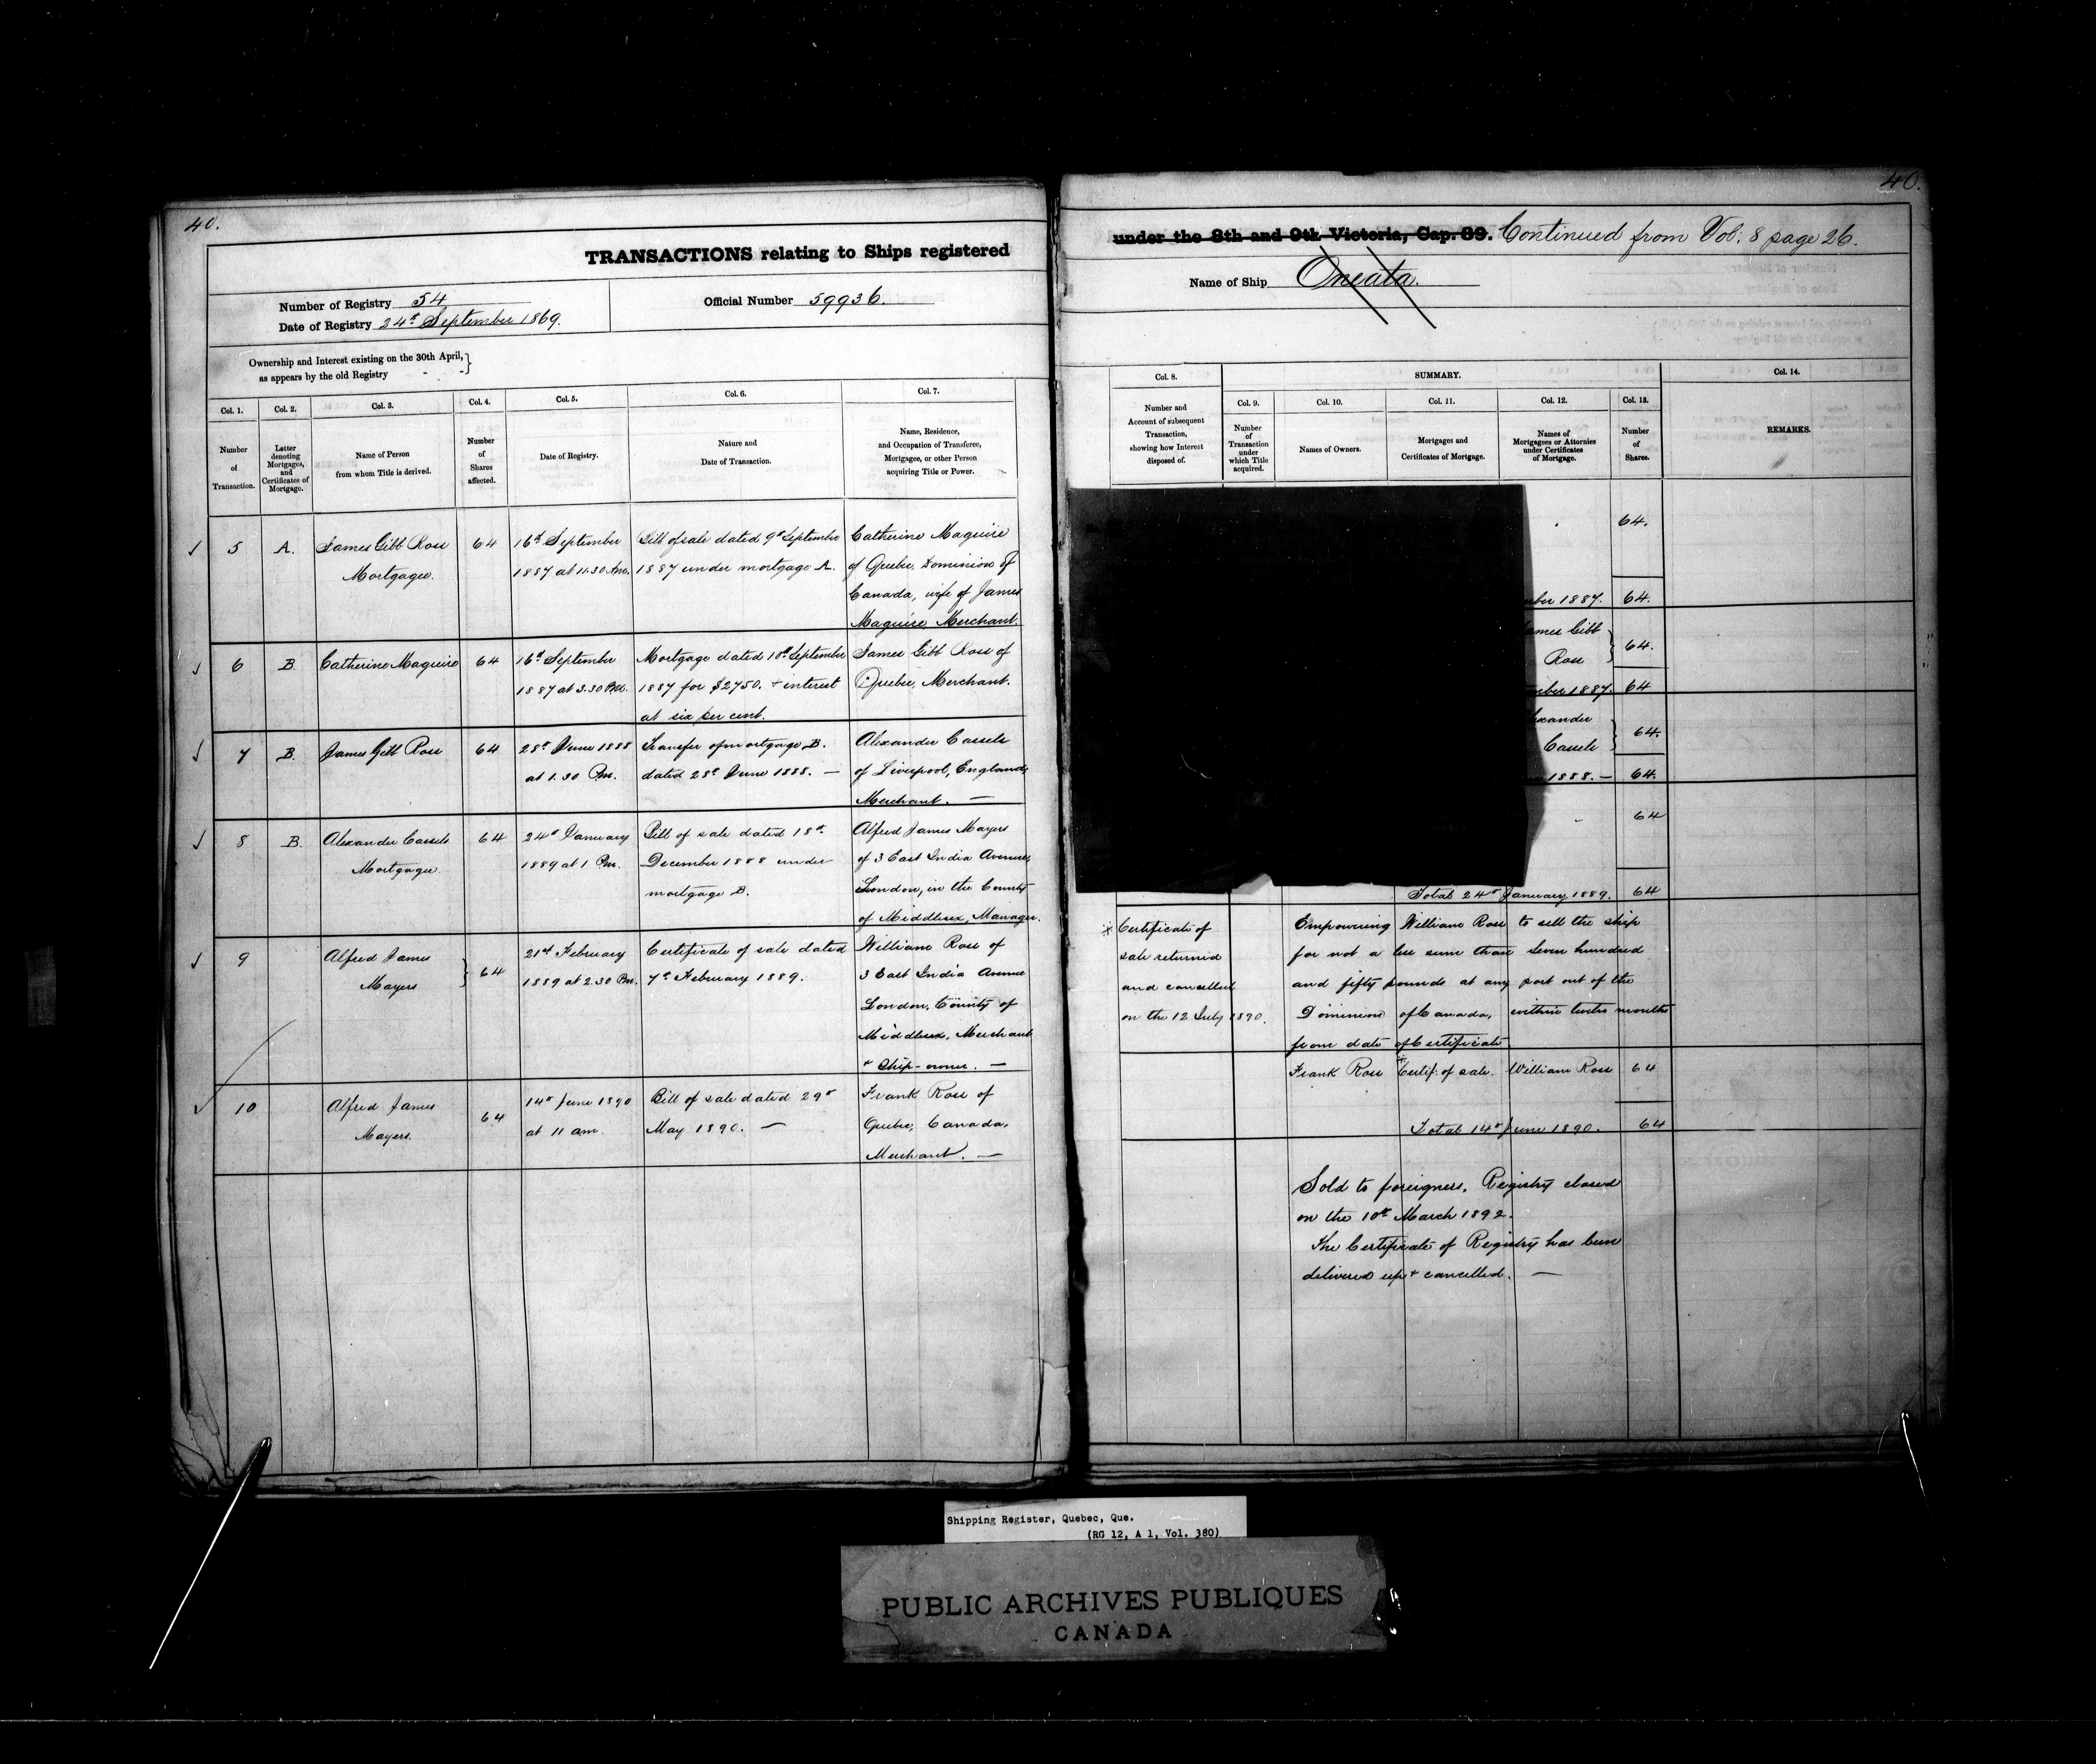 40.
TRANSACTIONS relating to Ships registered
Number of Registry 54
Official Number 59936.
Date of Registry 24th September 1869.
Ownership and Interest existing on the 30th April,
as appears by the old Registry
Col. 1.
Col. 2.
Col. 3.
Col. 4.
Col. 5.
Col. 6.
Col. 7.
Number
of
Transaction.
Letter
denoting
Mortgages,
and
Certificates of
Mortgage.
Name of Person
from whom Title is derived.
Number
of
Shares
affected.
Date of Registry.
Nature and
Date of Transaction.
Name, Residence,
and Occupation of Transferee,
Mortgagee, or other Person
acquiring Title or Power.
5
A.
James Gibb Ross
Mortgagee.
64
16th September
1887 at 11.30 Am.
Bill of sale dated 9th September
1887 under mortgage A.
Catherine Maguire
of Quebec, Dominion of
Canada, wife of James
Maguire, Merchant.
6
B
Catherine Maguire
64
16th September
1887 at 3.30 Pm.
Mortgage dated 10th September
1887 for $2750. + interest
at six per cent.
James Gibb Ross of
Quebec, Merchant.
7
B.
James Gibb Ross
64
28th June 1888
at 1.30 Pm.
Transfer of mortgage B.
dated 28th June 1888. —
Alexander Cassels
of Liverpool, England,
Merchant. —
8
B.
Alexander Cassels
Mortgagee
64
24th January
1889 at 1 Pm.
Bill of sale dated 18th
December 1888 under
mortgage B.
Alfred James Mayers
of 3 East India Avenue,
London, in the County
of Middlesex, Manager.
9
Alfred James
Mayers
64
21st February
1889 at 2.30 Pm.
Certificate of sale dated
7th February 1889.
William Ross of
3 East India Avenue
London, County of
Middlesex, Merchant
+ Ship-owner. —
10
Alfred James
Mayers.
64
14th June 1890
at 11 am.
Bill of sale dated 29th
May 1890. —
Frank Ross of
Quebec, Canada,
Merchant. —
40.
under the 8th and 9th Victoria, Cap. 89. Continued from Vol: 8 page 26.
Name of Ship Oneata.
Col. 8.
SUMMARY.
Col. 14.
Col. 9.
Col. 10.
Col. 11.
Col. 12.
Col. 13.
Number and
Account of subsequent
Transaction,
showing how Interest
disposed of.
Number
of
Transaction
under
which Title
acquired.
Names of Owners.
Mortgages and
Certificates of Mortgage.
Names of
Mortgagees or Attornies
under Certificates
of Mortgage.
Number
of
Shares.
REMARKS.
64.
mber 1887. 64.
ames Gibb
Ross
64.
mber 1887. 64
lexander
Cassels
64.
1888. — 64.
64
Total 24th January 1889. 64
Certificate of
sale returned
and cancelled
on the 12 July 1890.
Empowering William Ross to sell the ship
for not a less sum than seven hundred
and fifty pounds at any port out of the
Dominion of Canada, within twelve months
from date of Certificate
Frank Ross Certif: of sale. William Ross 64
Total 14th June 1890. 64
Sold to foreigners. Registry closed
on the 10th March 1892.
The Certificate of Registry has been
delivered up + cancelled. —
Shipping Register, Quebec, Que.
(RG 12, A 1, Vol. 380)
PUBLIC ARCHIVES PUBLIQUES
CANADA